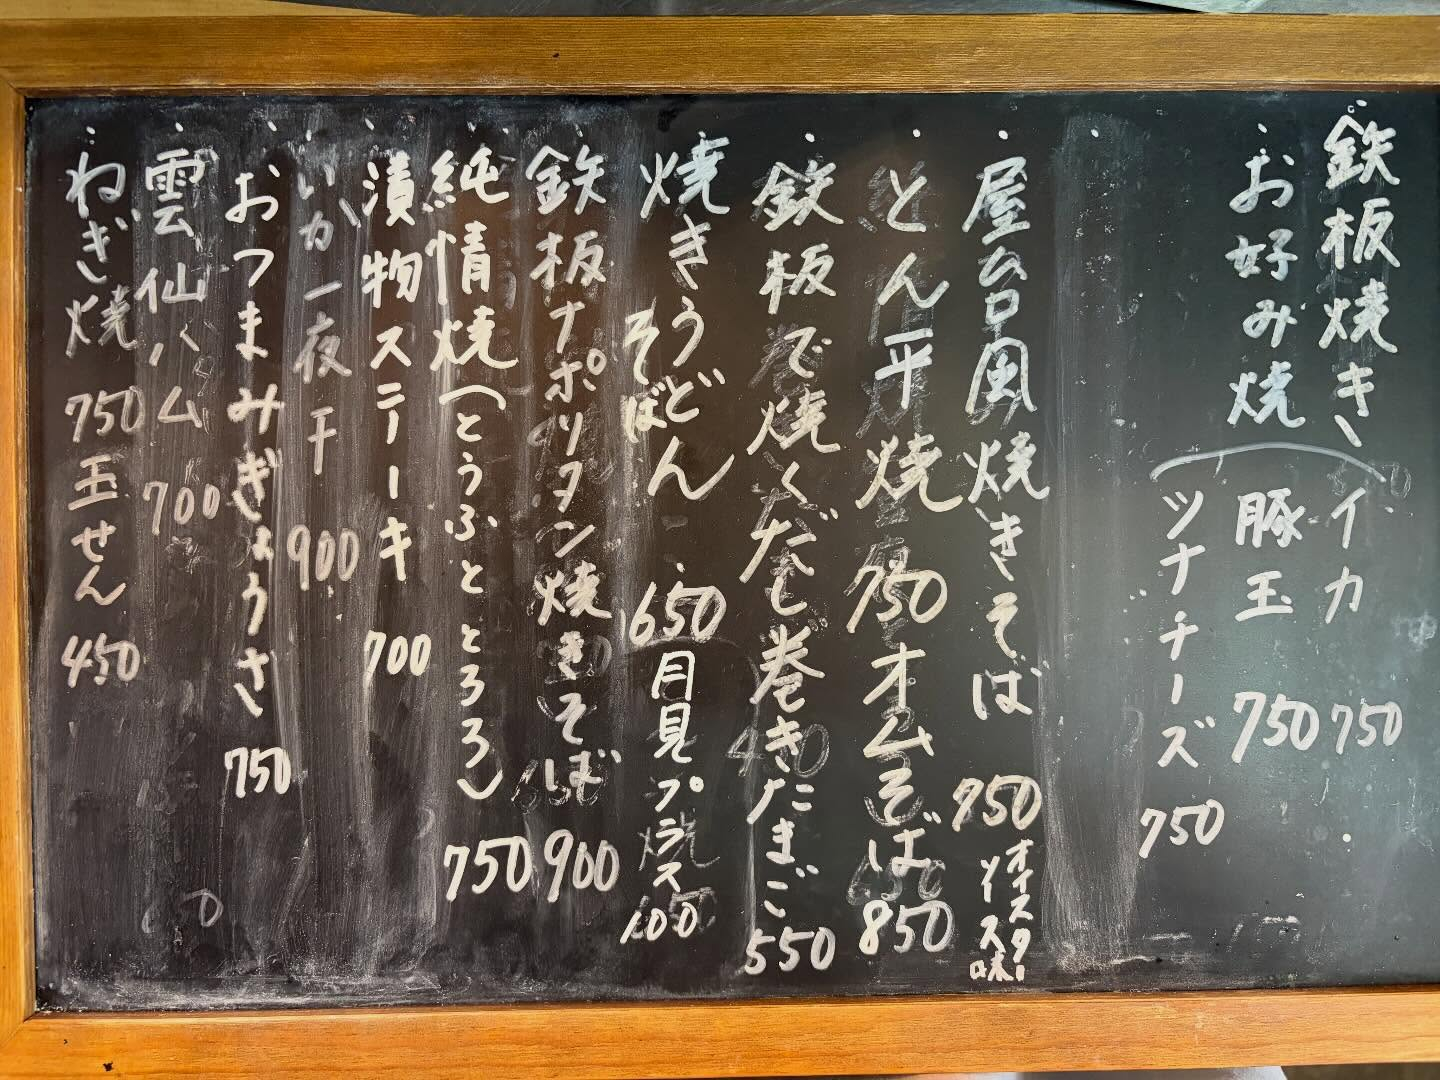 ・鉄板焼き
・お好み焼
イカ 750
豚玉 750
ツナチーズ 750
・屋台風焼きそば 750 オイスターソース味
・とん平焼 750 オムそば 850
・鉄板で焼くだし巻きたまご 550
・焼きうどん そば 650 月見プラス100
・鉄板ナポリタン焼きそば 900
・純情焼(とうふととろろ) 750
・漬物ステーキ 700
・いか一夜干 900
・おつまみぎょうさ 750
・雲仙ハム 700
・ねぎ焼 750 玉せん 450